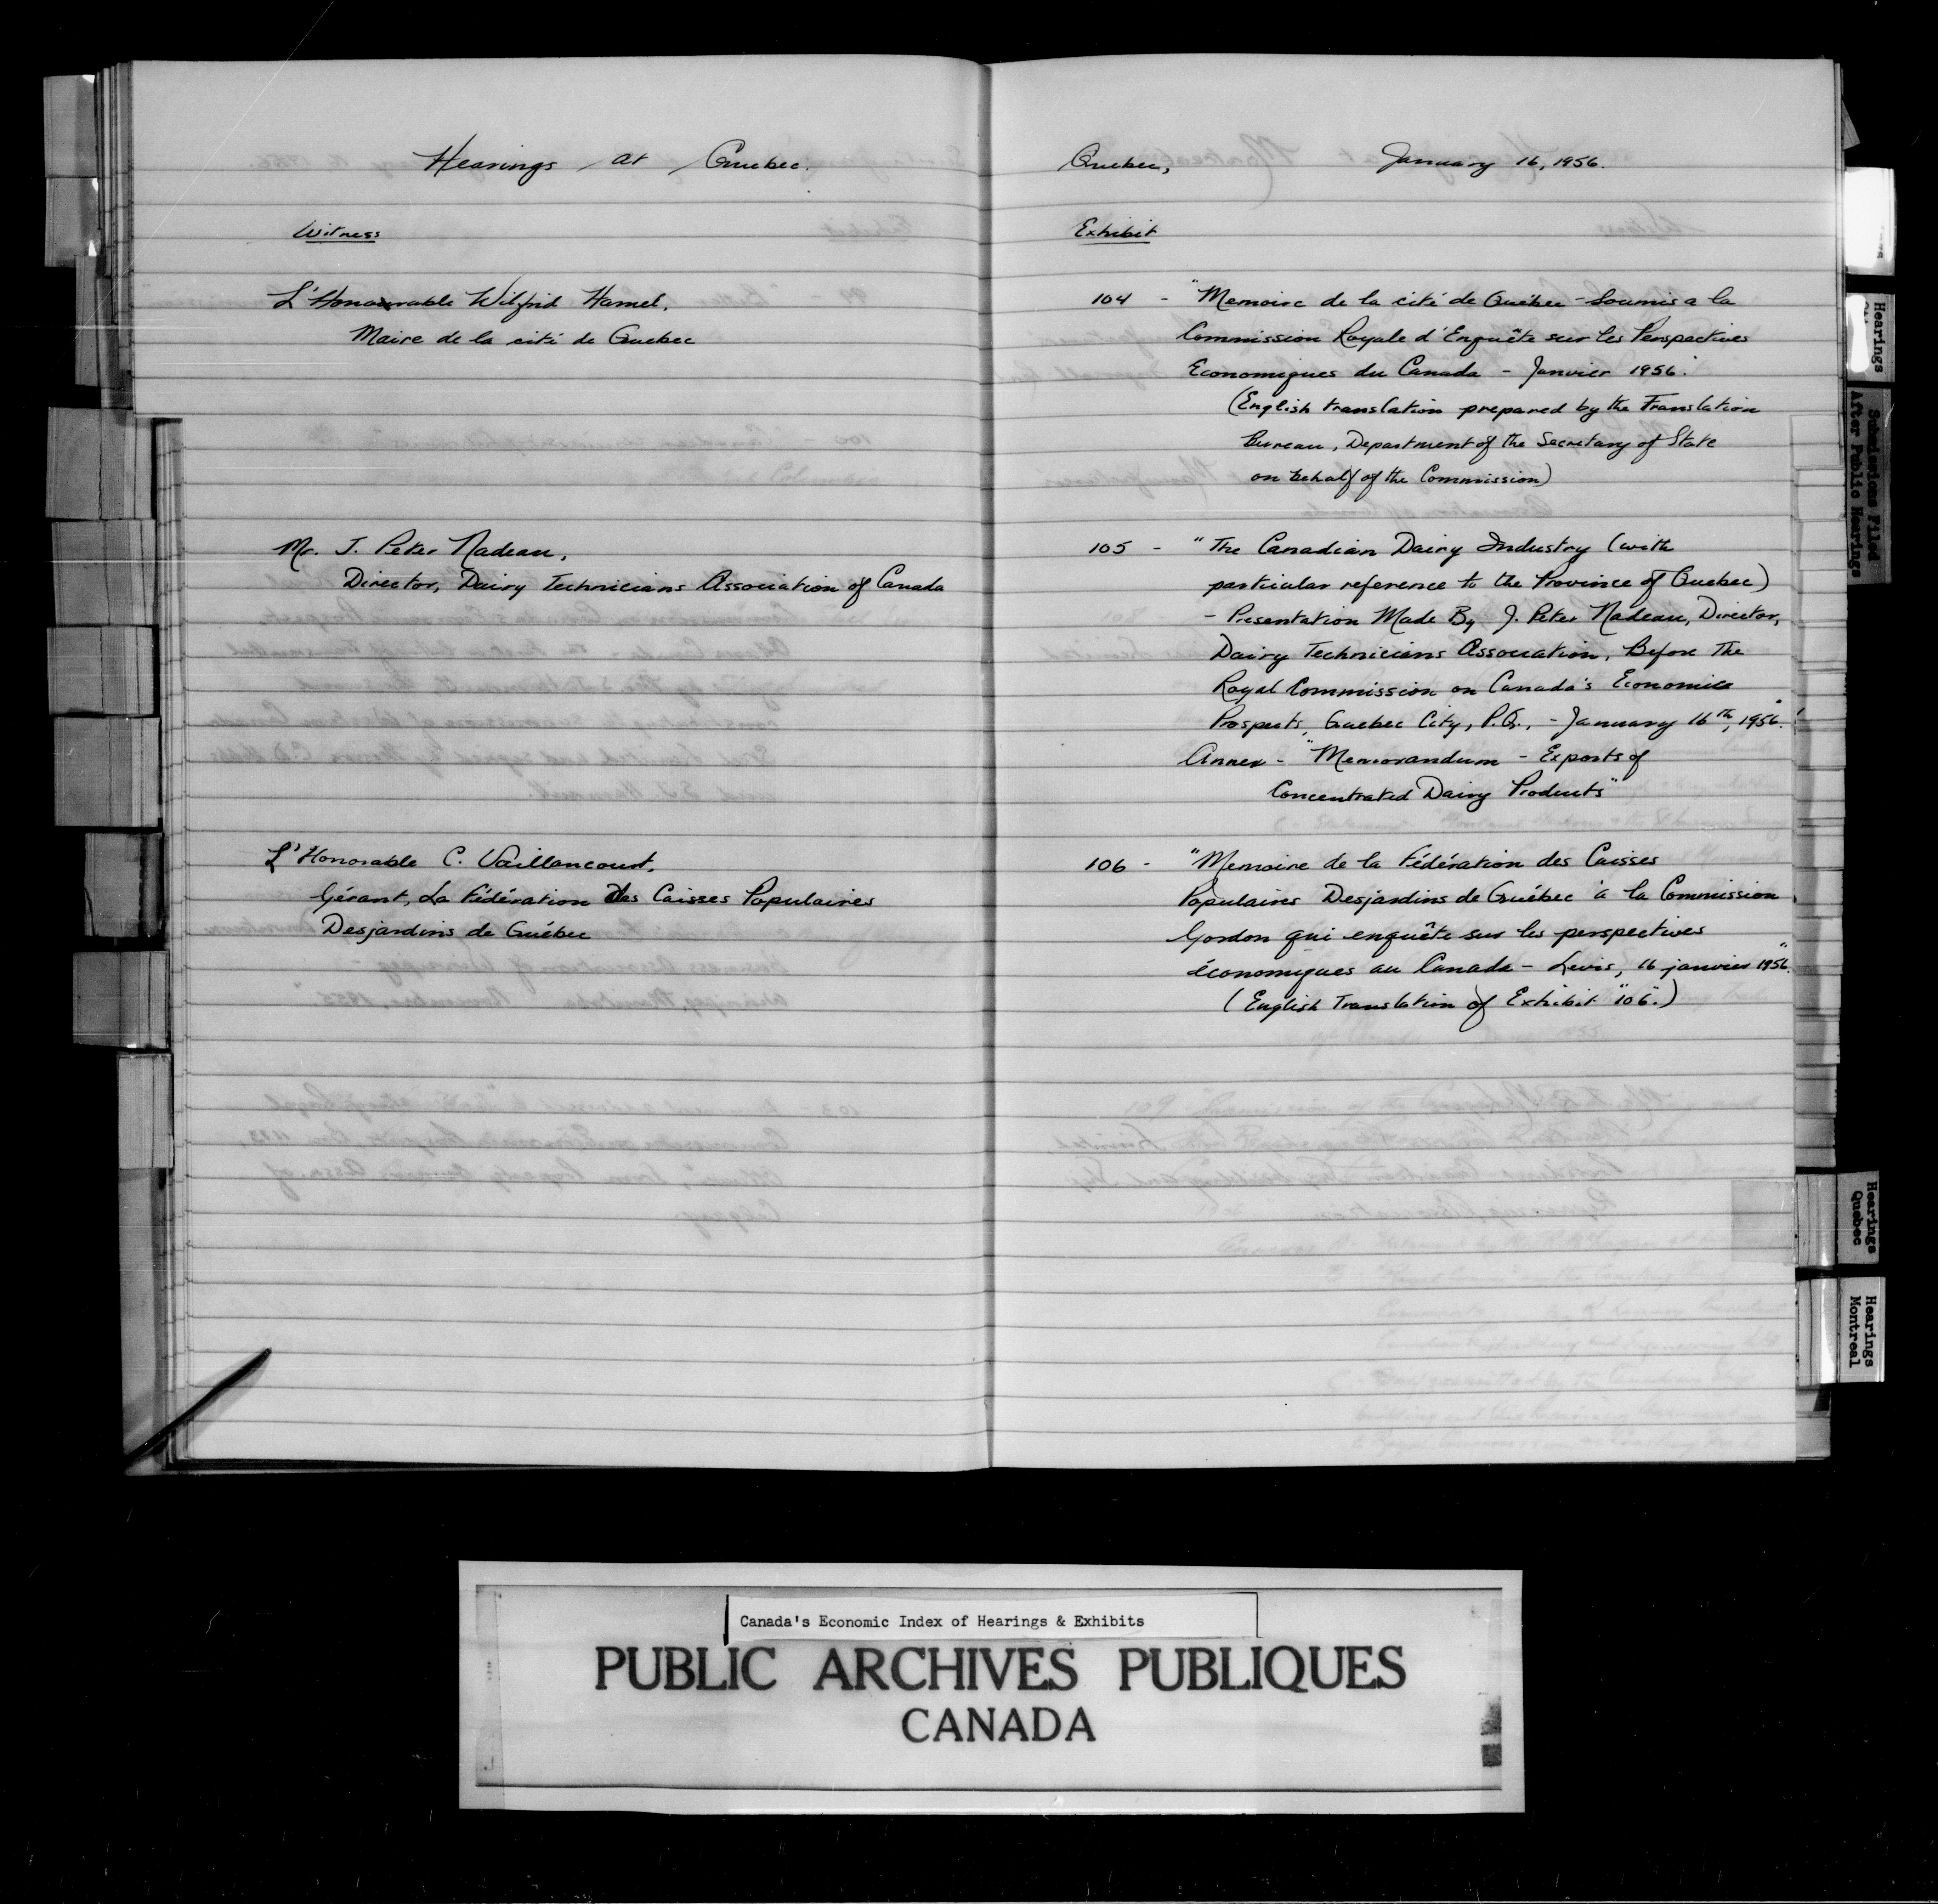 Hearings at Quebec.
Witness
L'Honourable Wilfrid Hamel,
Maire de la cité de Quebec
Mr. J. Peter Nadeau,
Director, Dairy Technicians Association of Canada
L'Honorable C. Vaillancourt,
Gérant, La Fédération Des Caisses Populaires
Desjardins de Québec
Quebec, January 16, 1956.
Exhibit
104 - "Memoire de la cité de Québec - Soumis a la
Commission Royale d'Enquête sur les Perspectives
Economiques du Canada - Janvier 1956."
(English translation prepared by the Translation
Bureau, Department of the Secretary of State
on behalf of the Commission)
105 - "The Canadian Dairy Industry (with
particular reference to the Province of Quebec)
- Presentation Made By J. Peter Nadeau, Director,
Dairy Technicians Association, Before the
Royal Commission on Canada's Economic
Prospects, Quebec City, P.Q., - January 16th, 1956."
Annex - "Memorandum - Exports of
Concentrated Dairy Products"
106 - "Memoire de la Fédération des Caisses
Populaires Desjardins de Québec à la Commission
Gordon qui enquête sur les perspectives
économiques au Canada - Levis, 16 janvier 1956."
(English Translation of Exhibit "106".)
Hearings
Submissions Filed
After Public Hearings
Hearings
Quebec
Hearings
Montreal
Canada's Economic Index of Hearings & Exhibits
PUBLIC ARCHIVES PUBLIQUES
CANADA